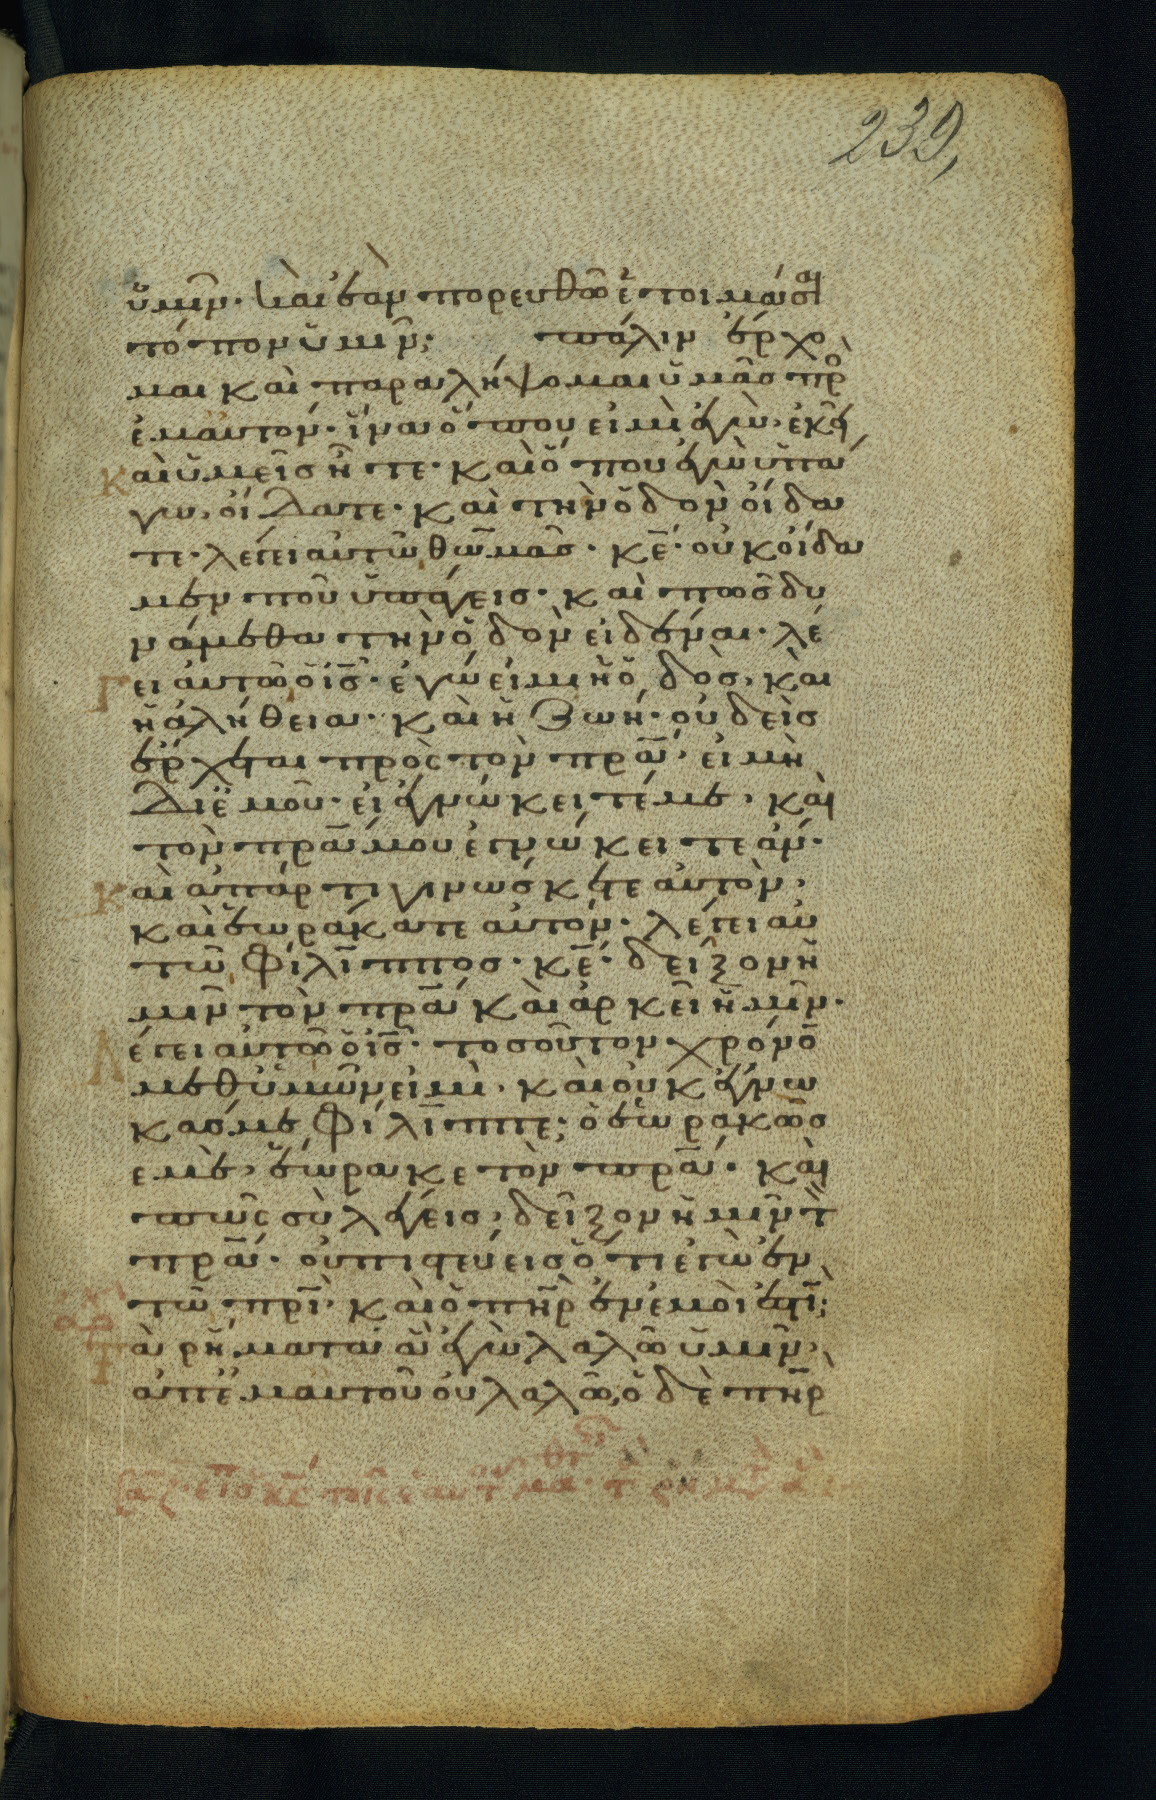 239,
ὑμῖν· καὶ ἐὰν πορευθῶ ἑτοιμάσαι
τόπον ὑμῖν; πάλιν ἔρχο
μαι καὶ παραλήψομαι ὑμᾶς πρὸ
ἐμαυτόν· ἵνα ὅπου εἰμὶ ἐγὼ· ἐκεῖ
καὶ ὑμεῖς ἦτε· καὶ ὅπου ἐγὼ ὑπά
γω· οἴδατε· καὶ τὴν ὁδὸν οἴδα
τε· λέγει αὐτῶ θωμᾶς· κε· οὐκ οἴδα
μεν ποῦ ὑπάγεις· καὶ πῶς δυ
νάμεθα τὴν ὁδὸν εἰδέναι· λέ
Γει αὐτῶ ὁ ις· ἐγώ εἰμι ἡ ὁδὸς· καὶ
ἡ ἀλήθεια· καὶ ἡ ζωή· οὐδεὶς
ἔρχεται πρὸς τὸν πρα· εἰ μὴ
δι ἐμοῦ· εἰ ἐγνώκειτέ με· καὶ
τὸν πρα μου ἐγνώκειτε ἄν·
Καὶ ἀπάρτι γινώσκετε αὐτὸν·
καὶ ἑωράκατε αὐτόν· λέγει αὐ
τῶ Φίλιππος· κε· δεῖξον ἡ
μῖν τὸν πρα καὶ ἀρκεῖ ἡμῖν·
Λέγει αὐτῶ ὁ ις· τοσοῦτον χρόνο
μεθ ὑμῶν εἰμὶ· καὶ οὐκ ἔγνω
κάς με Φίλιππε; ὁ ἑωρακὼς
ἐμὲ· ἑώρακε τὸν πρα· καὶ
πῶς σὺ λέγεις· δεῖξον ἡμῖν τὸ
πρα· οὐ πιστεύεις ὅτι ἐγὼ ἐν
τῶ πρι· καὶ ὁ πηρ ἐν ἐμοὶ ἐστι;
Τὰ ῥήματα ἃ ἐγὼ λαλῶ ὑμῖν·
ἀπ ἐμαυτοῦ οὐ λαλῶ· ὁ δὲ πηρ